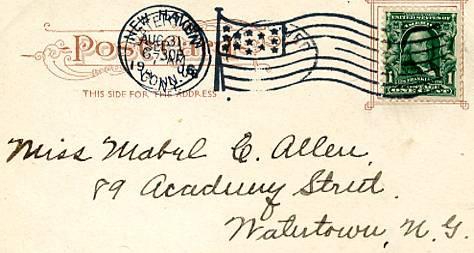 Post Card
NEW HAVEN
AUG 31
830 PM
CONN.
THIS SIDE FOR THE ADDRESS
UNITED STATES OF AMERICA
1 1
ONE CENT
Miss Mabyl E. Allen,
89 Academy Street.
Watertown, N.Y.